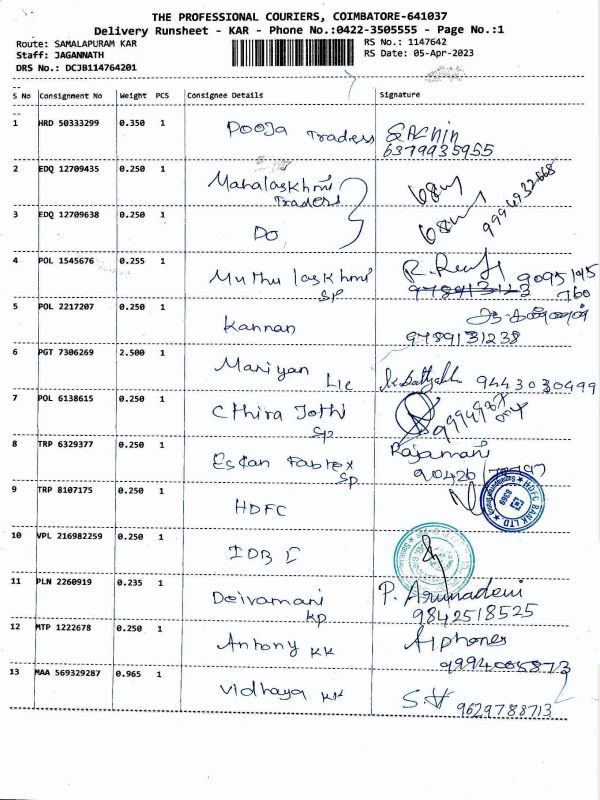 THE PROFESSIONAL COURIERS, COIMBATORE-641037
Delivery Runsheet - KAR - Phone No.:0422-3505555 - Page No.:1
Route: SAMALAPURAM KAR
RS No.: 1147642
Staff: JAGANNATH
RS Date: 05-Apr-2023
DRS No.: DCJB114764201
S No Consignment No Weight PCS Consignee Details Signature
1 HRD 50333299 0.350 1 Pooja Traders Sachin
6379935955
2 EDQ 12709435 0.250 1 Mahalaskhmi
Traders
3 EDQ 12709638 0.250 1 DO
4 POL 1545676 0.255 1 Muthu laskhmi SP 9095195
760
5 POL 2217207 0.250 1 Kannan
9789131238
6 PGT 7306269 2.500 1 Mariyan LIC 9443030499
7 POL 6138615 0.250 1 Jothi SP
8 TRP 6329377 0.250 1 SP Rajamani
9 TRP 8107175 0.250 1 HDFC
HDFC BANK LTD
10 VPL 216982259 0.250 1 IDB I
11 PLN 2260919 0.235 1 Deivamani KP P. Arunadevi
9842518525
12 MTP 1222678 0.250 1 Antony KK
13 MAA 569329287 0.965 1 Vidhaya KK
9629788713